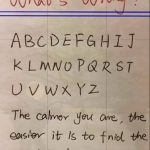 What's Wrong?
ABCDEFGHIJ
KLMNOPQRST
UVWXYZ
The calmer you are, the
easier it is to fnid the